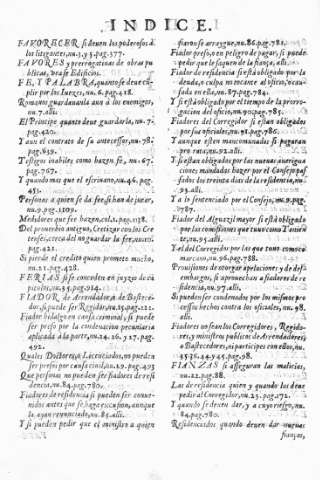 INDICE.
FAVORECER si deuen los poderosos á
los litigantes, nu.3. y 4. pag.377.
FAVORES y prerrogatiuas de obras pu
blicas, vease Edificios.
FE, Y PALABRA, quanto se deue cū-
plir por los Iuezes, nu.6. pag.418.
Romanos guardauanla aun à los enemigos,
nu.7. alli.
El Principe quanto deue guardarla, nu.7.
pag.420.
Y aun el contrato de su antecessor, nu.78.
pag.639.
Testigos inabiles como hazen fè, nu.67.
pag.767.
Y quando mas que el escriuano, nu.46. pag.
451.
Personas a quien se da fee, si han de jurar,
nu.9. pag.1109.
Medidores que fee hazen, col.2. pag.1138.
Del prouerbio antiguo, Cretizar con los Cre
tenses, cerca del no guardar la fee, num.11.
pag.421.
Si pierde el credito quien promete mucho,
nu.21. pag.428.
FERIAS si se conceden en juyzio de ca
pitulos, nu.55. pag.914.
FIADOR de Arrendadores de Bastece-
dor, si puede ser Regidor, nu.35. pag.221.
Fiador hidalgo en causa criminal, si puede
ser preso por la condenacion pecuniaria
aplicada à la parte, nu.24. 26. y 27. pag.
492.
Quales Doctores, ò Licenciados, no pueden
ser presos por causa ciuil, nu.29. pag.493
Que personas no pueden ser fiadores de resi
dencia, nu.84. pag.780.
Fiadores de residencia si pueden ser conue-
nidos antes que se haga excusion, aunque
la ayan renunciado, nu.85. alli.
Y si pueden pedir que el ministro a quien
fiaron se arraygue, nu.86. pag.781.
Fiador preso, y en peligro de pagar, si puede
pedir que le saquen de la fiança, alli.
Fiador de residencia si està obligado por la
deuda, o culpa mostrante al oficio, o cau-
sada en ella, nu.87. pag.784.
Y si està obligado por el tiempo de la prorro-
gacion del oficio, nu.90. pag.785.
Fiadores del Corregidor si estan obligados
por sus oficiales, nu.91. pag.786.
Y aunque esten mancomunados si pagaran
pro rata, nu.92. alli.
Y si estan obligados por las nueuas aueriguá
ciones mandadas hazer por el Consejo pas
sados los treinta dias de la residencia, nu.
93. alli.
Y a lo sentenciado por el Consejo, nu.95. pag.
1787.
Fiador del Alguazil mayor si està obligado
por las comissiones que tuuo como Tenien
te, nu.97. alli.
Y el del Corregidor por las que tuuo como co
marcano, nu.96. pag.788.
Prouisiones de otorgar apelaciones y de des-
embargos, si aprouechan a fiadores de re-
sidencia, nu.97. alli.
Si pueden ser condenados por los mismos pro
cessos hechos contra los oficiales, nu.98.
alli.
Fiadores no sean los Corregidores, Regido-
res, y ministros publicos de Arrendadores,
o Bastecedores, ni participes con ellos, nu.
35.36.44. y 45. pag.98.
FIANZAS si asseguran las malicias,
nu.22. pag.88.
Las de residencia quien y quando los deue
pedir al Corregidor, nu.23. pag.172.
Y quando se deuen dar, y a cuyo riesgo, nu.
84. pag.780.
Residenciados quando deuen dar nueuas
fianças,